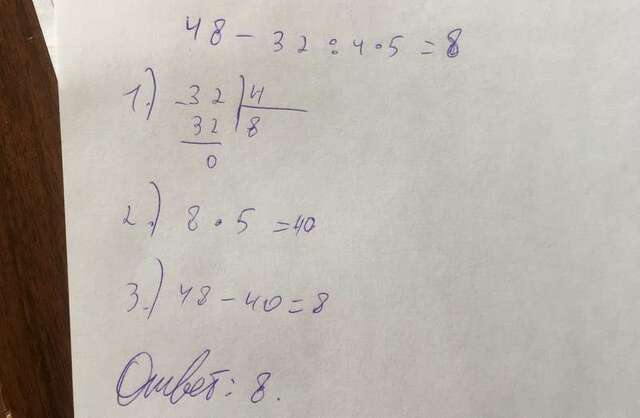 48 - 32 : 4 · 5 = 8
1.) -32 | 4
32 | 8
0
2.) 8 · 5 = 40
3.) 48 - 40 = 8
Ответ: 8.